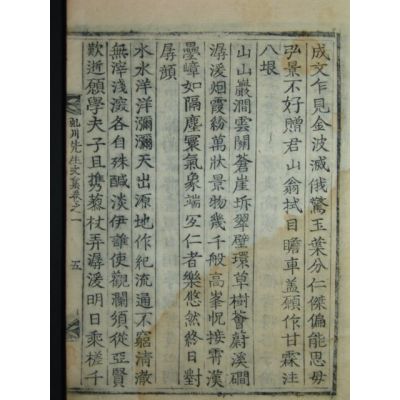 成文乍見金波滅俄驚玉葉分仁傑偏能思毋
弘景不好贈君山翁拭目瞻車盖願作甘霖注
八垠
山山巖澗雲關蒼崖坼翠壁環草樹薈蔚溪磵
潺湲烟霞紛萬狀景物幾千般高峯怳接霄漢
疊嶂如隔塵寰氣象端宜仁者樂悠然終日對
孱顔
水水洋洋瀰瀰天出源地作紀流通不窮清澈
無滓淺深各自殊鹹淡伊誰使觀瀾須從亞賢
歎逝願學夫子且携藜杖弄潺湲明日乘槎千
虬川先生文集卷之一 五